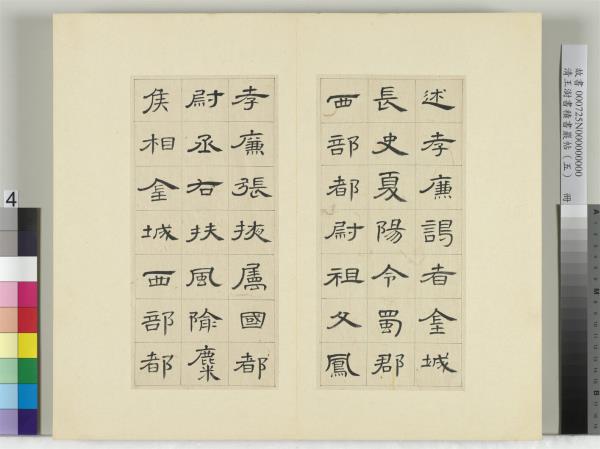 述孝廉謁者金城
長史夏陽令蜀郡
西部都尉祖父鳳
孝廉張掖屬國都
尉丞右扶風隃麋
侯相金城西部都
故書 000725N000000000
清王澍書積書巖帖（五） 冊
4